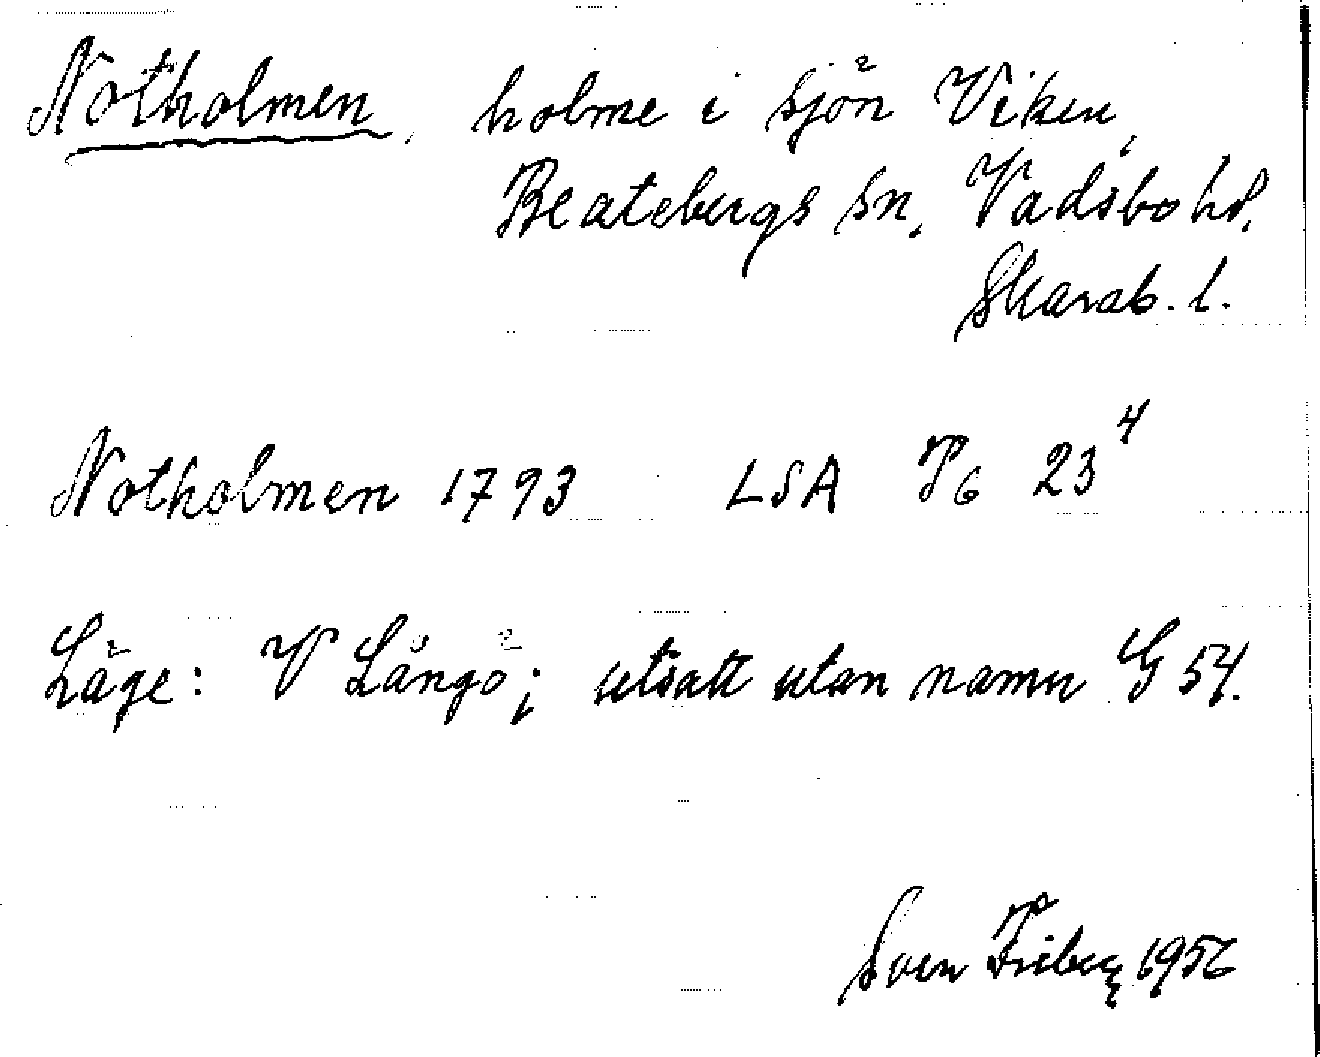 Notholmen, holme i sjön Viken,
Beatebergs sn, Vadsbo hd,
Skarab. l.
Notholmen 1793 LSA P6 23⁴
Läge: V Långö; utsatt utan namn G 54.
Sven Friberg 1956